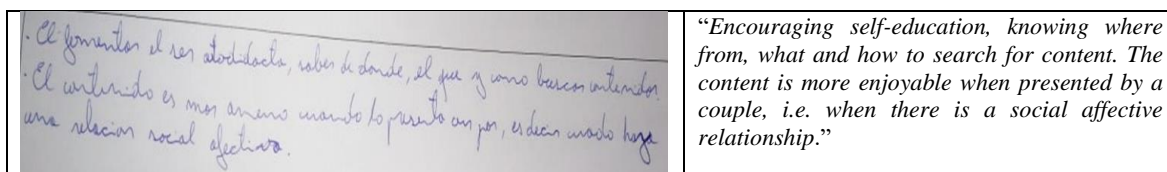 · El fomentar el ser atodidacta, saber de donde, el que y como buscar contenidos
· El contenido es mas ameno cuando lo presenta un par, es decir cuado haya
una relacion social afectiva.
“Encouraging self-education, knowing where
from, what and how to search for content. The
content is more enjoyable when presented by a
couple, i.e. when there is a social affective
relationship.”